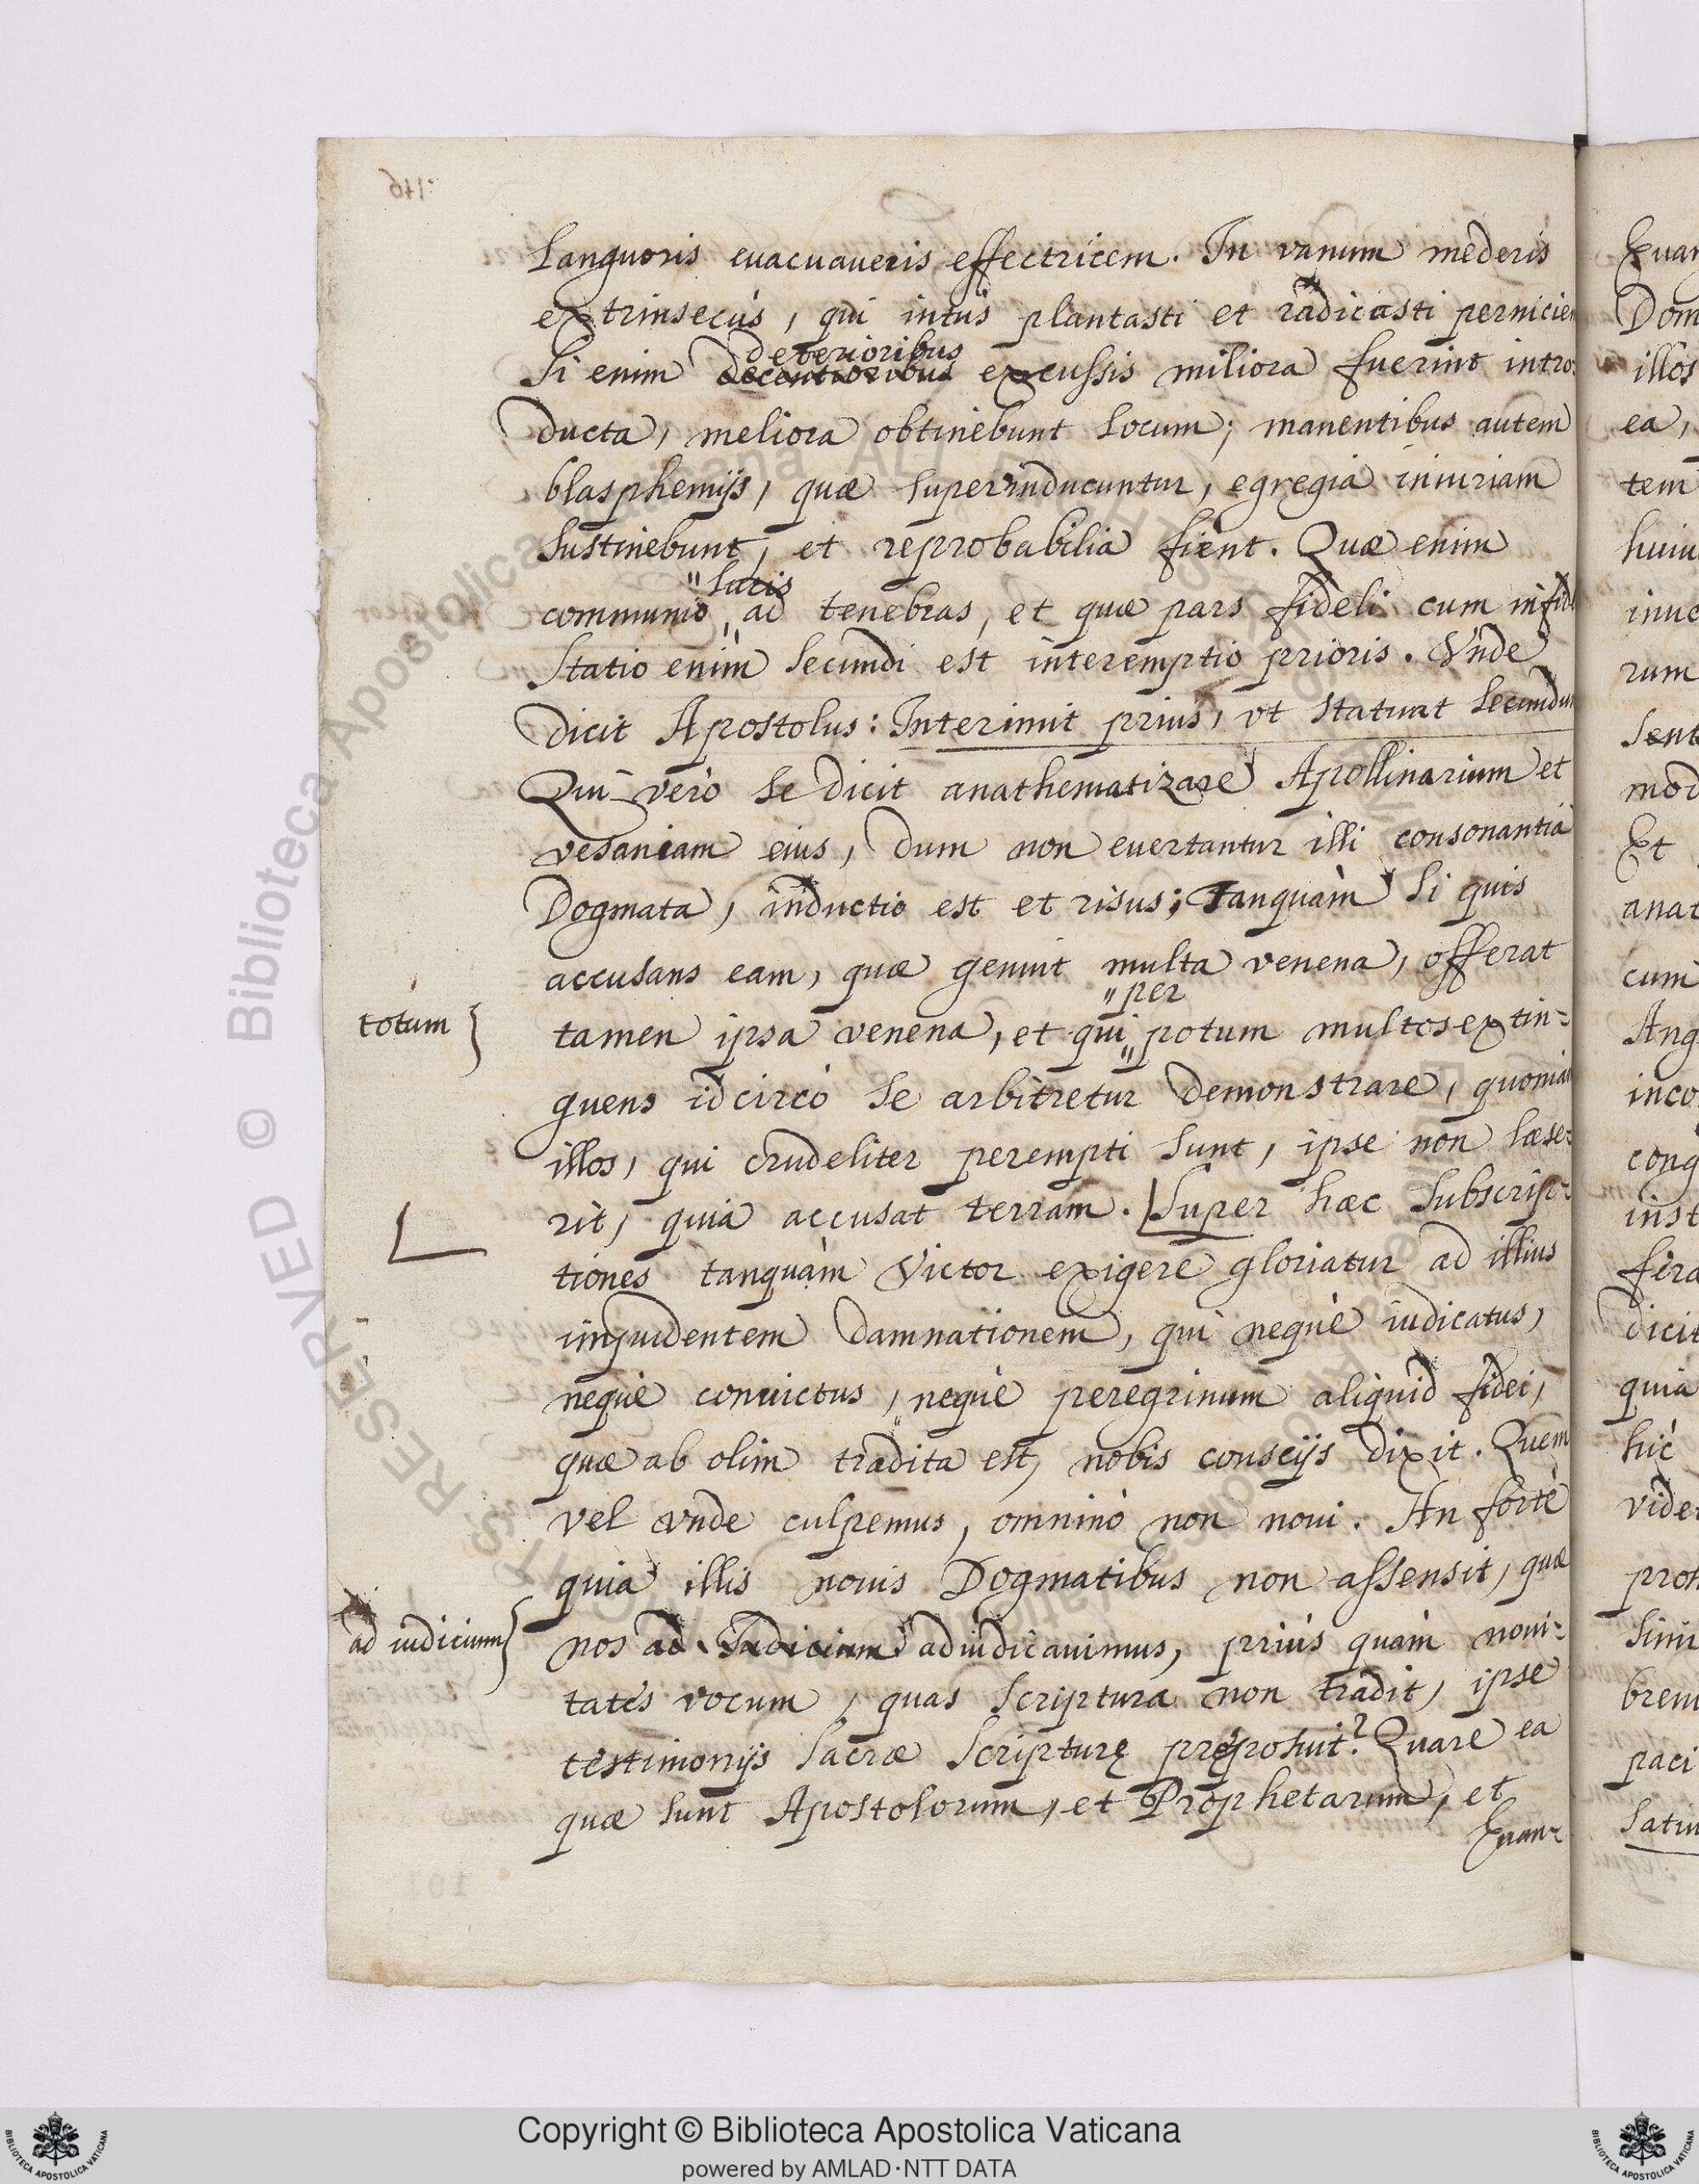 Languoris euacuaueris effectricem. In vanum mederis
extrinsecùs, qui intùs plantasti et radicasti pernicie
deterioribus
Si enim decentioribus excussis miliora fuerint intro=
ducta, meliora obtinebunt locum; manentibus autem
blasphemijs, quæ superinducuntur, egregia iniuriam
sustinebunt, et reprobabilia fient. Quæ enim
"lucis
communio, ad tenebras, et quæ pars fideli cum infid
Statio enim secundi est interemptio prioris. Vnde
dicit Apostolus: Interimit prius, vt statuat secundu
Qui verò se dicit anathematizare Apollinarium et
vesaniam eius, dum non euertantur illi consonantia
Dogmata, inductio est et risus; Tanquàm si quis
accusans eam, quæ genuit multa venena, offerat
"per
totum } tamen ipsa venena, et qui potum multos extin=
guens idcircò se arbitretur demonstrare, quonia
illos, qui crudeliter perempti sunt, ipse non læse=
rit, quia accusat terram. Super hæc subscrip=
tiones tanquàm Victor exigere gloriatur ad illius
impudentem damnationem, qui nequè iudicatus,
nequè conuictus, nequè peregrinum aliquid fidei,
quæ ab olim tradita est, nobis conscijs dixit. Quem
vel vnde culpemus, omninò non noui. An fortè
quia illis nouis Dogmatibus non assensit, quæ
ad iudicium } nos ad Iudicium adiudicauimus, priùs quàm noui=
tates vocum, quas Scriptura non tradit, ipse
testimonijs Sacræ Scripturę pręposuit? Quare ea
quæ sunt Apostolorum, et Prophetarum, et
Euan=
146
Euan
Dom
illos
ea,
tem
huiu
inue
rum
sent
mod
Et
anat
cum
Ang
inco
cong
inst
fira
dicit
quia
hìc
vide
pro
simi
breui
paci
Copyright © Biblioteca Apostolica Vaticana
powered by AMLAD·NTT DATA